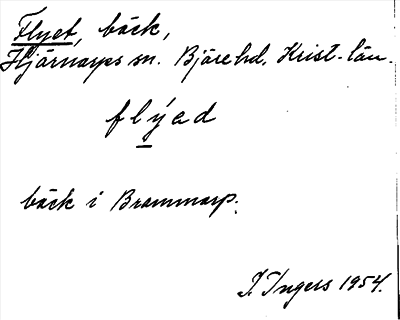 Flyet, bäck,
Hjärnarps sn. Bjäre hd. Krist. län.
flýəd
bäck i Brammarp.
I. Ingers 1954.